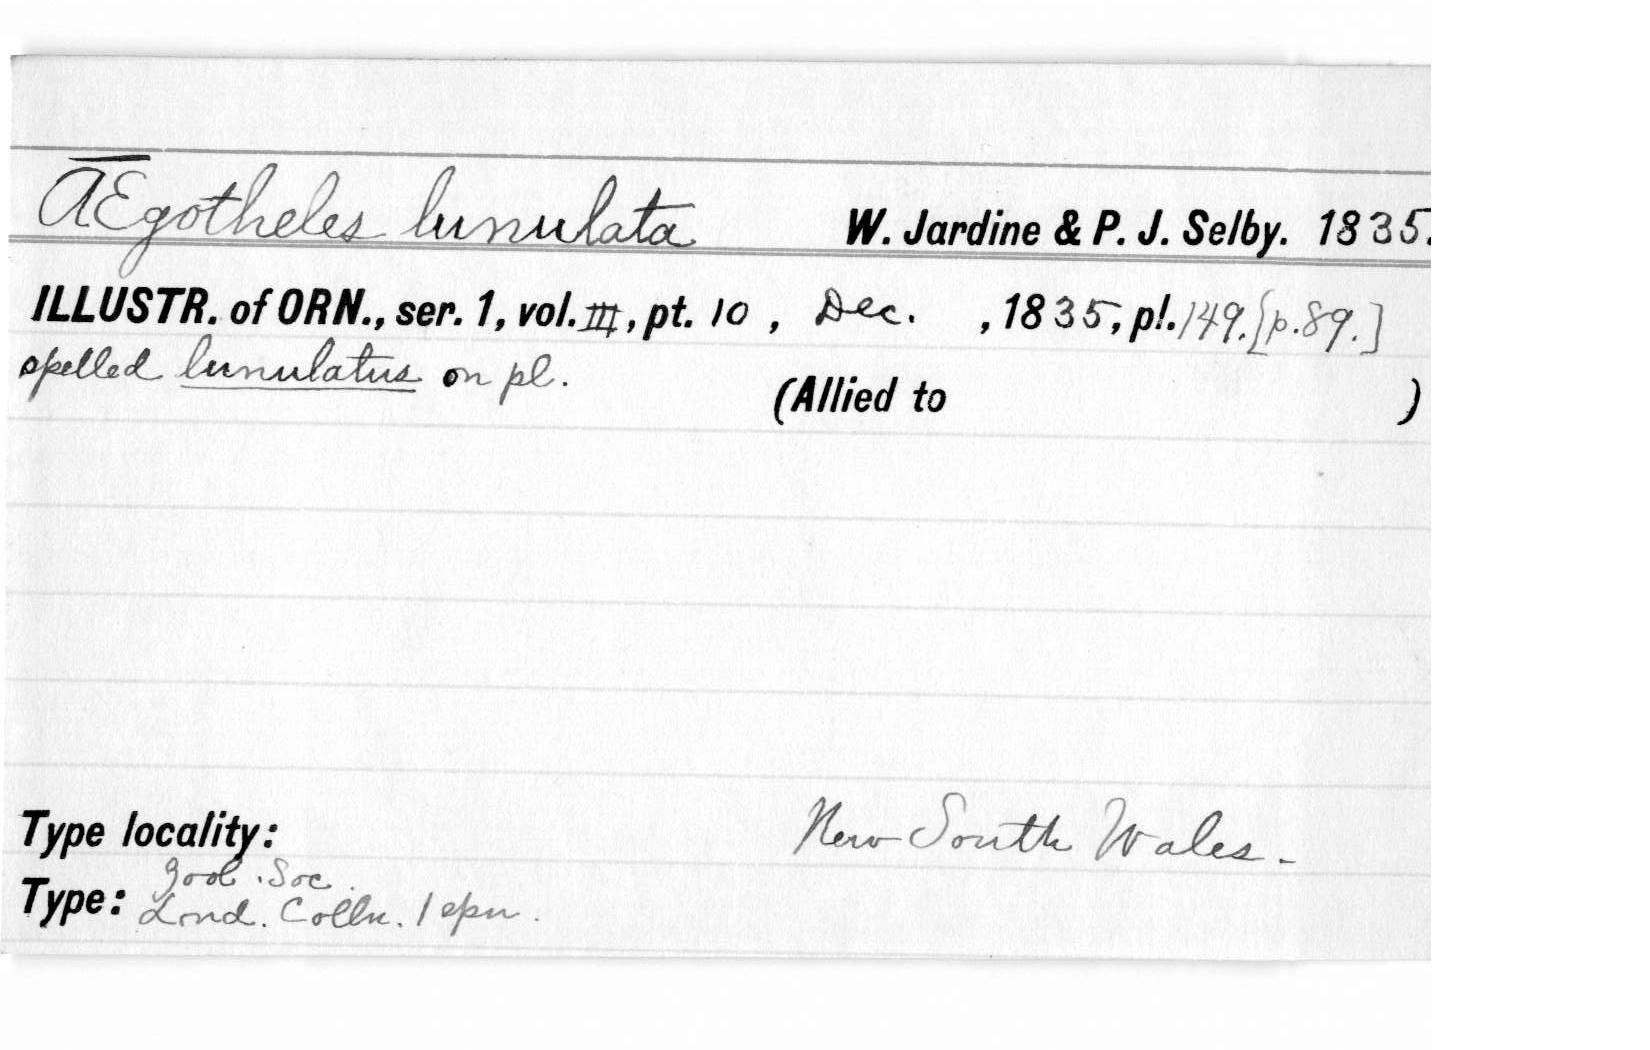 ÆEgotheles lunulata W. Jardine & P. J. Selby. 1835.
ILLUSTR. of ORN., ser. 1, vol. III, pt. 10, Dec. , 1835, pl. 149. [p. 89.]
spelled lunulatus on pl.
(Allied to )
Type locality: New South Wales -
Zool. Soc.
Type: Lond. Colln. 1 spn.